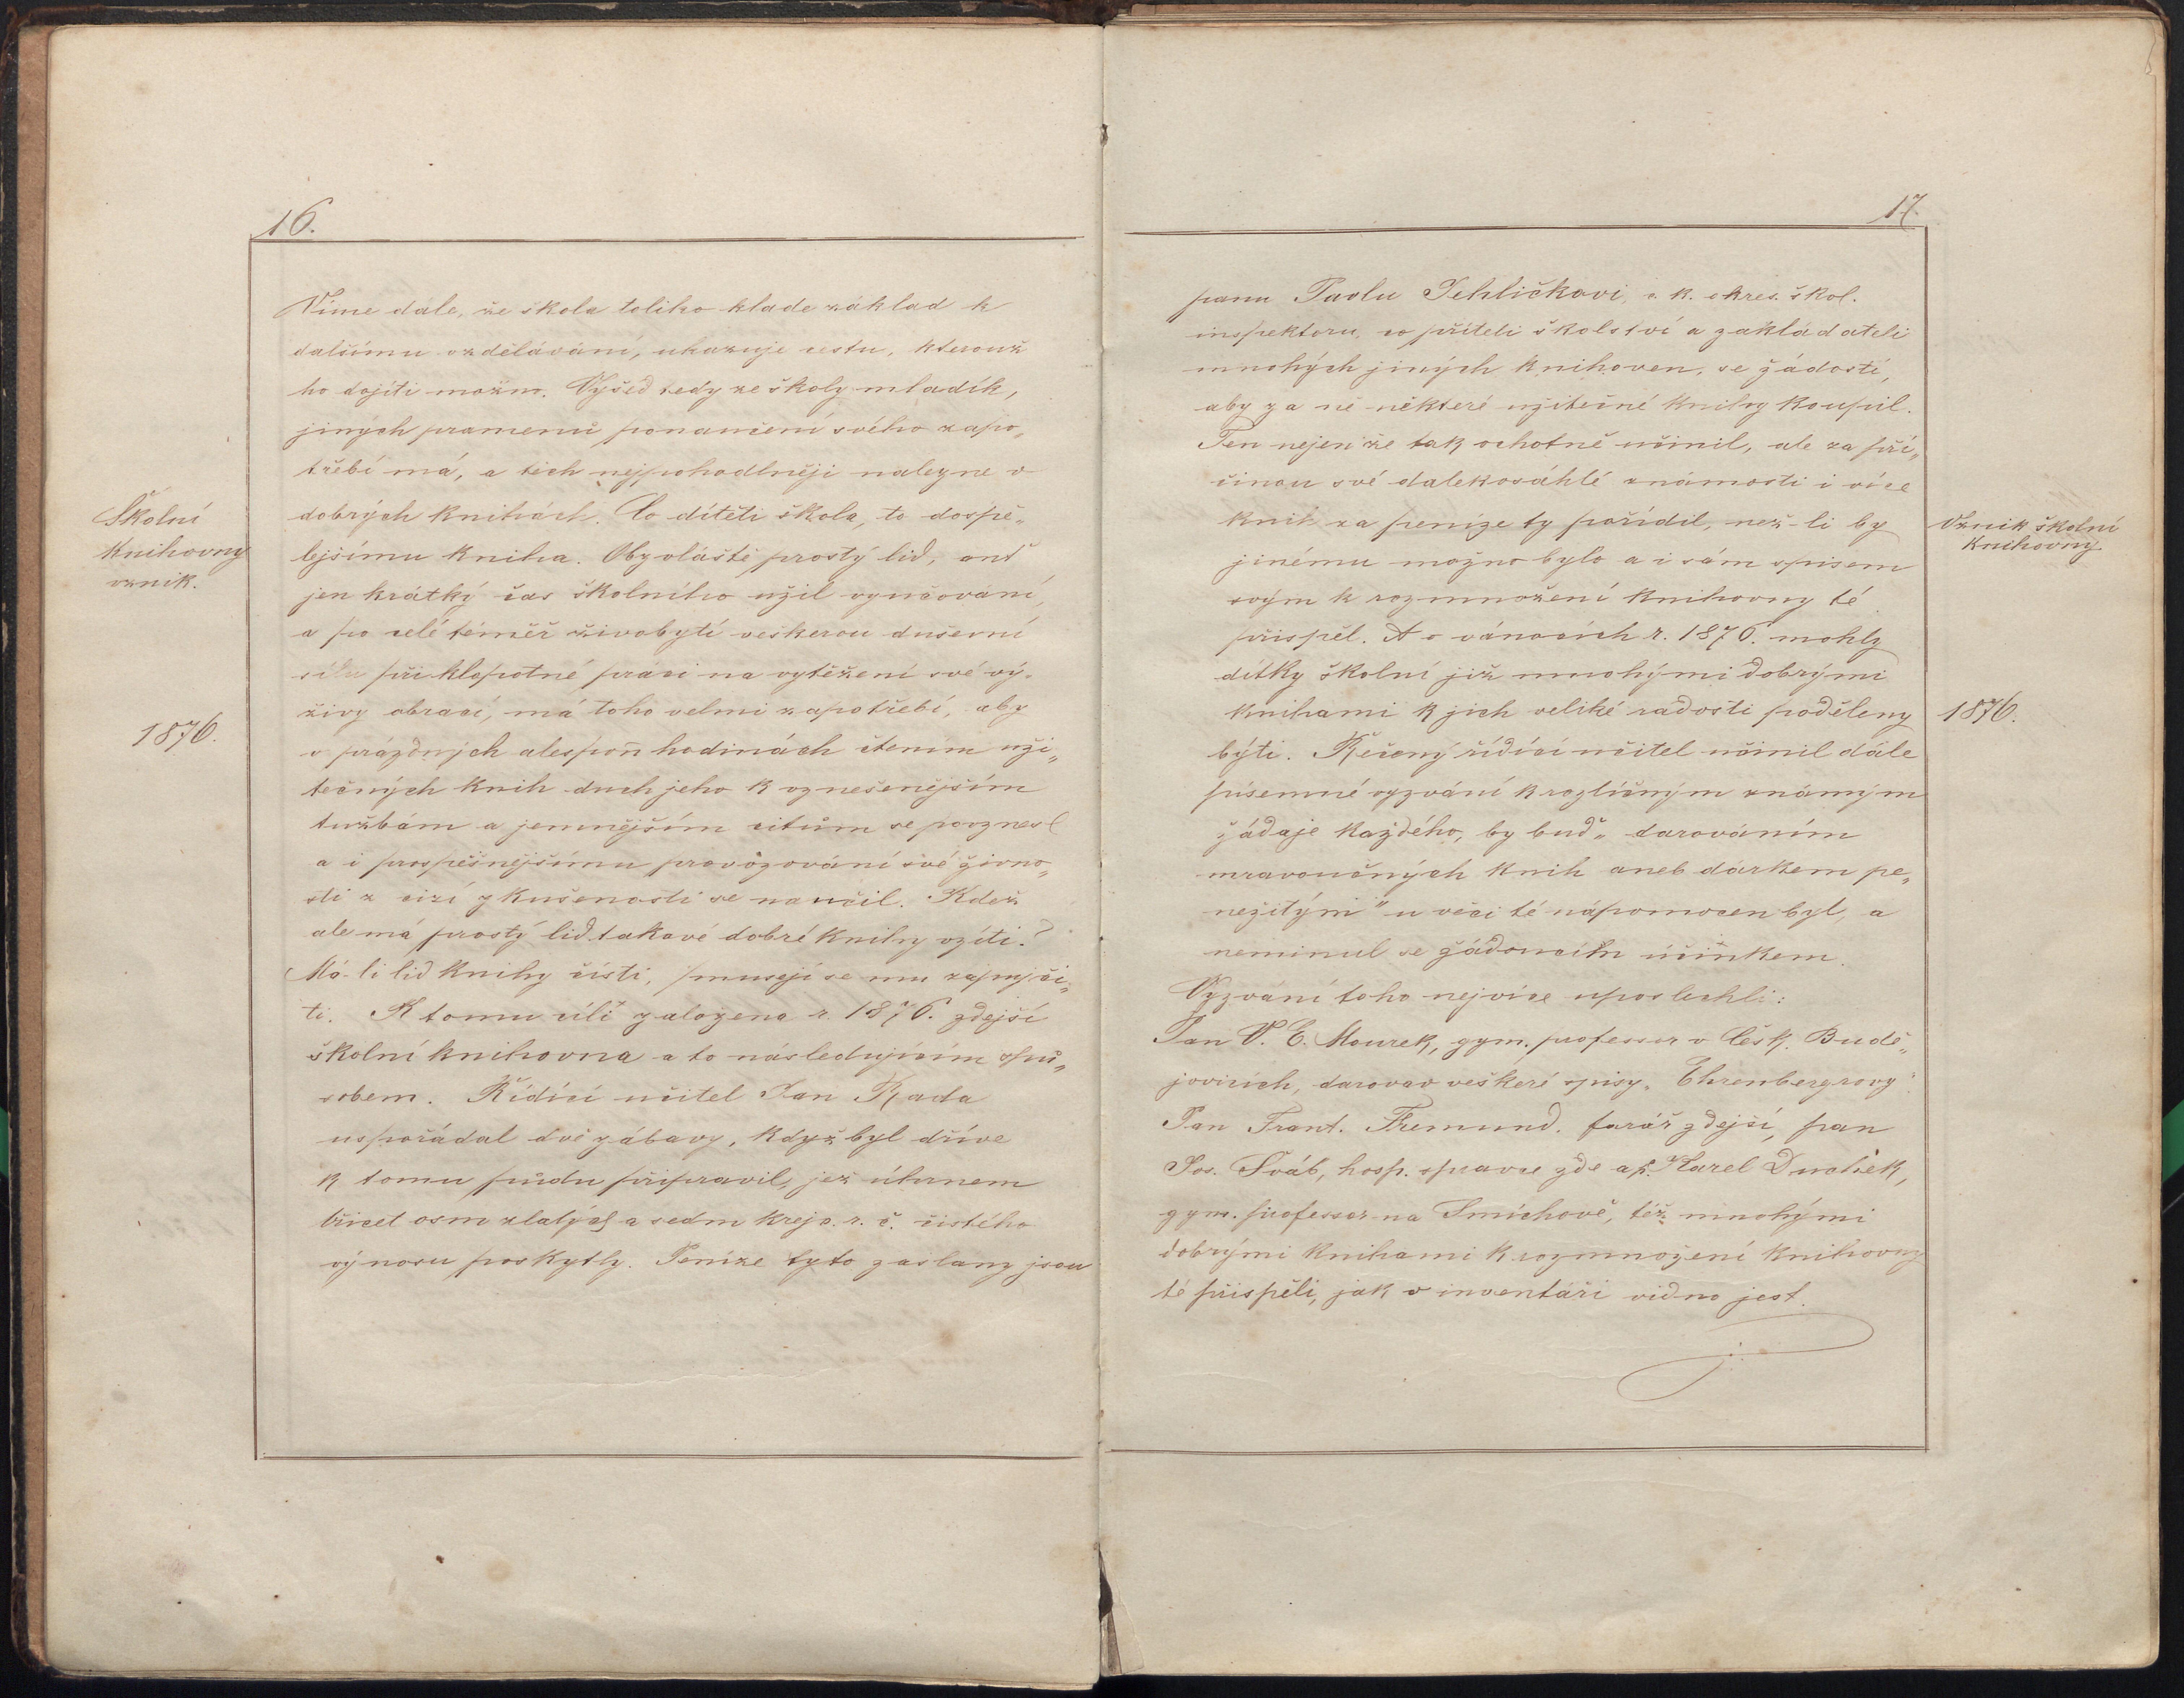 16.
Víme dále, že škola toliko klade základ k
dalšímu vzdělávání, ukazuje cestu, kterouž
ho dojíti možno. Vyšed tedy ze školy mladík,
jiných pramenů ponaučení svého zapo„
třebí má, a těch nejpohodlněji nalezne v
dobrých knihách. Co dítěti škola, to dospě„
lejšímu kniha. Obzvláště prostý lid, ant
jen krátký čas školního užil vyučování,
a po celé téměř živobytí veškerou duševní
sílu při klopotné práci na vytěžení své vý„
živy obrací, má toho velmi zapotřebí, aby
v prázdných alespoň hodinách čtením uži„
tečných knih duch jeho k vznešenějším
tužbám a jemnějším citům se povznesl
a i prospěšnějšímu provozování své živno„
sti z cizí zkušenosti se naučil. Kdež
ale má prostý lid takové dobré knihy vzíti?
Má-li lid knihy čísti, musejí se mu zapůjči„
ti. K tomu cíli založena r. 1876. zdejší
školní knihovna a to následujícím způ„
sobem. Řídící učitel Jan Rada
uspořádal dvě zábavy, když byl dříve
k tomu půdu připravil, jež úhrnem
třicet osm zlatých a sedm krejc. r. č. čistého
výnosu poskytly. Peníze tyto zaslány jsou
Školní
knihovny
vznik.
1876.
17.
panu Pavlu Jehličkovi, c. k. okres. škol.
inspektoru, co příteli školství a zakladateli
mnohých jiných knihoven, se žádostí,
aby za ně některé užitečné knihy koupil.
Ten nejen že tak ochotně učinil, ale za pří„
činou své dalekosáhlé známosti i více
knih za peníze ty pořídil, než-li by
jinému možno bylo a i sám spisem
svým k rozmnožení knihovny té
přispěl. A o vánocích r. 1876. mohly
dítky školní již mnohými dobrými
knihami k jich veliké radosti poděleny
býti. Řečený řídící učitel učinil dále
písemné vyzvání k rozličným známým
žádaje každého, by buď „darováním
mravoučných knih aneb dárkem pe„
nežitými" u věci té nápomocen byl, a
neminul se žádoucím účinkem.
Vyzvání toho nejvíce uposlechli:
Pan V. E. Mourek, gym. professor v Česk. Budě„
jovicích, darovav veškeré spisy „Ehrenbergrovy".
Pan Frant. Fremund. farář zdejší, pan
Jos. Šváb, hosp. správce zde a p. Karel Duchek,
gym. professor na Smíchově, též mnohými
dobrými knihami k rozmnožení knihovny
té přispěli, jak v inventáři vidno jest.
Vznik školní
knihovny
1876.